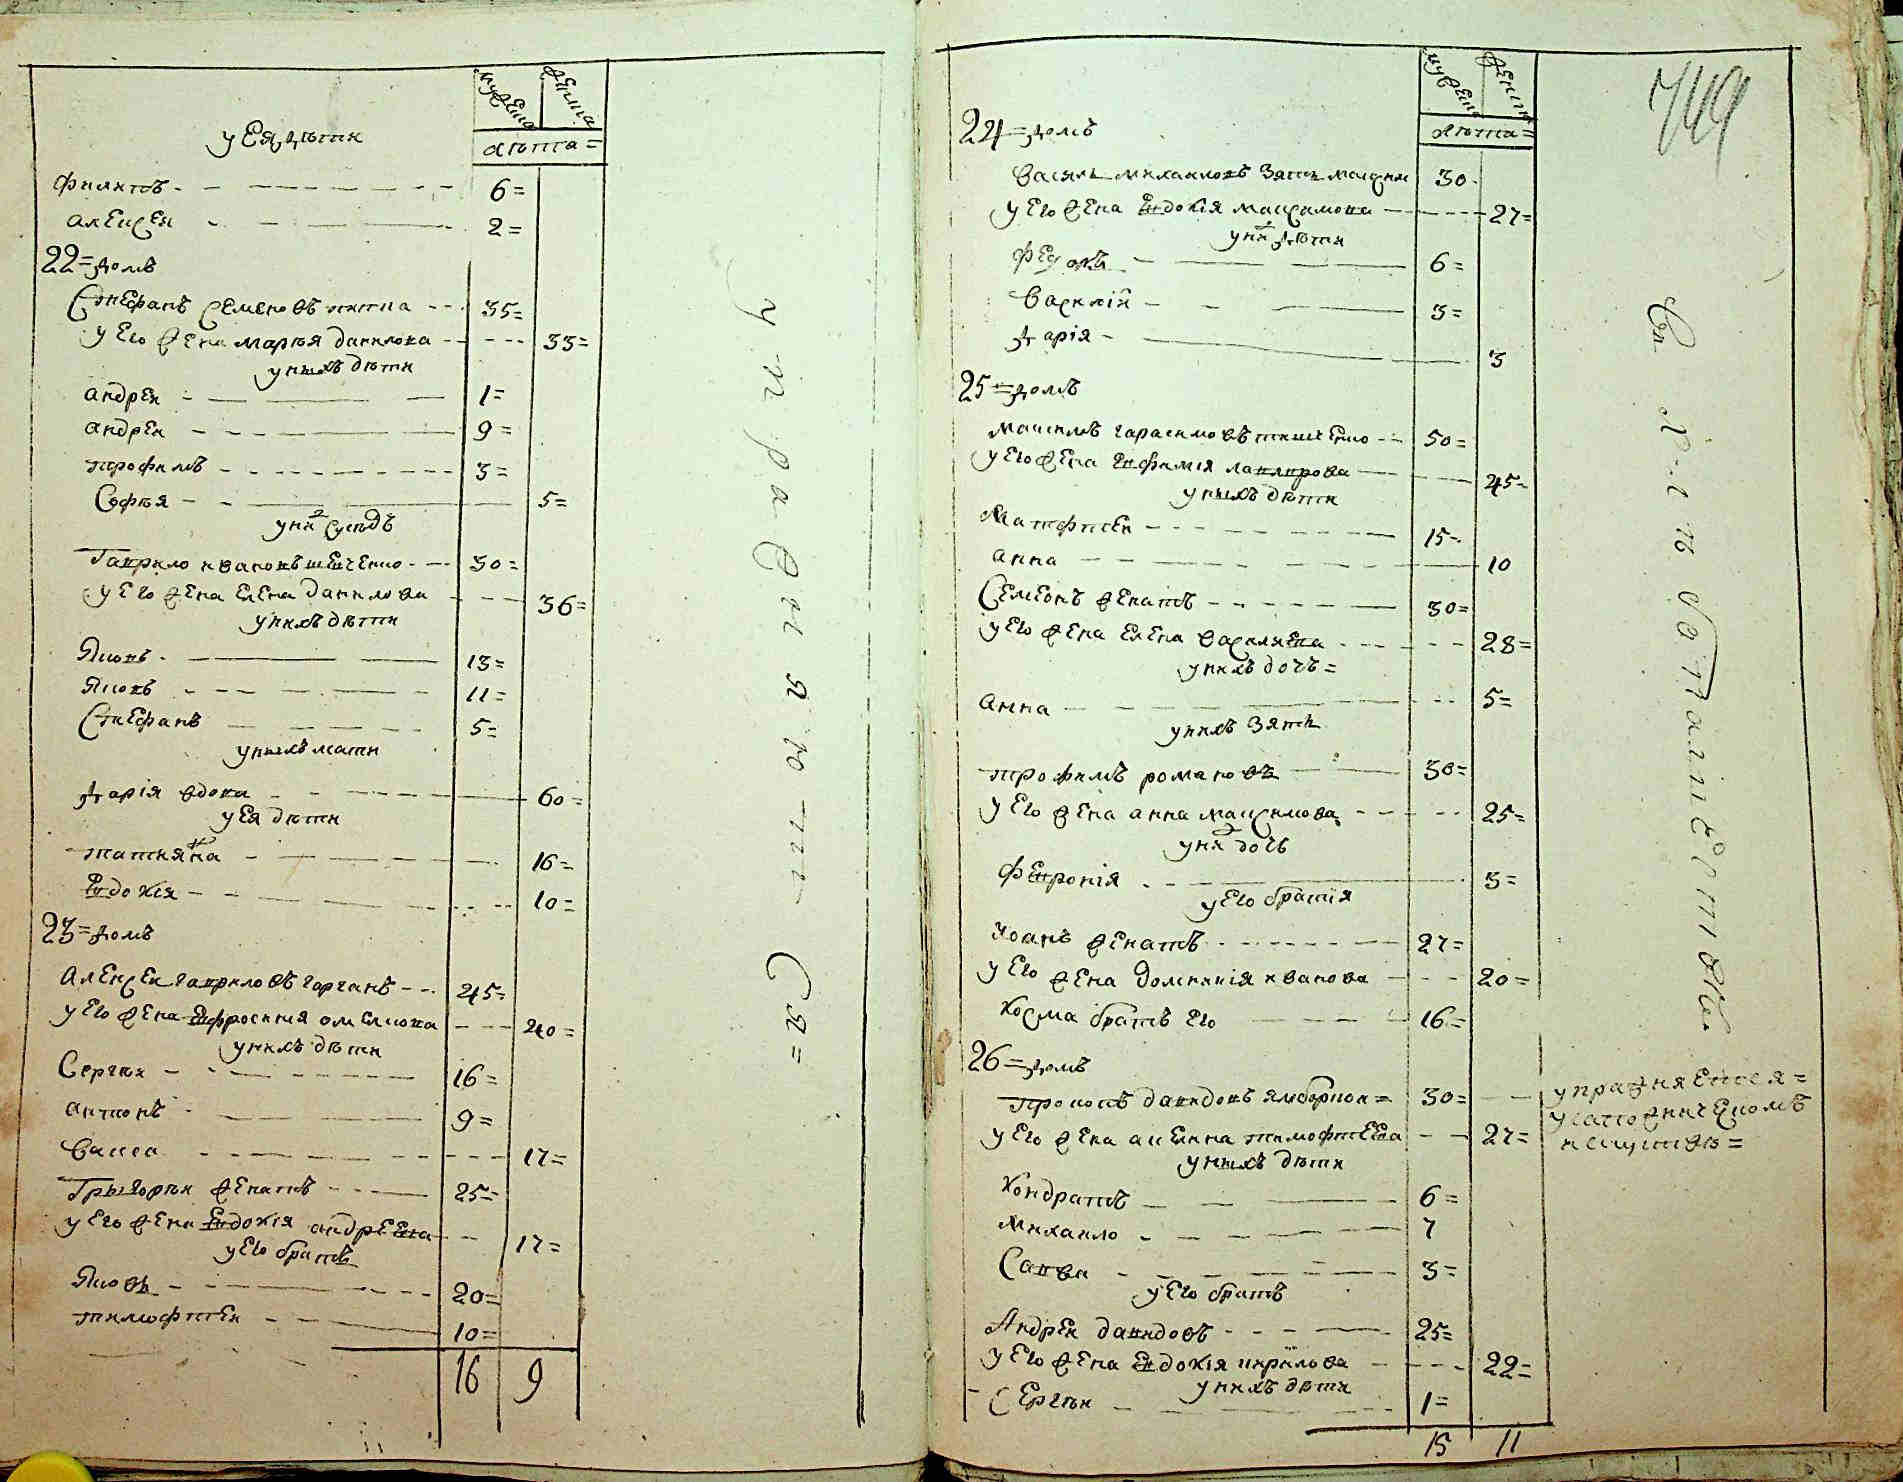 мужеска
женска
лѣта=
у Ея дѣти
Филипъ 6=
алеѯей 2=
22= домъ
Стефанъ Семеновъ питпа 35=
у Его жена марья данилова 33=
у нихъ дѣти
андрей 1=
андрей 9=
трофимъ 3=
Софья 5=
у них сусѣдъ
Гаврило ивановъ шевченко 30=
у Его жена Елена данилова 36=
у нихъ дѣти
Яковъ 13=
Яковъ 11=
Стефанъ 5=
у нихъ мати
дарія вдова 60=
у Ея дѣти
татияна 16=
Евдокія 10=
23= домъ
алексей гавриловъ горганъ 245=
у Его жена Евфросиния 40=
у нихъ дѣти
Сергѣй 16=
антонъ 9=
Васса 17=
Григорѣй женатъ 25=
у Его жена Евдокія андреева 17=
у Его братъ
Яковъ 20=
тимофтей 10=
16 9
упражняютця=
мужеска
женска
лѣта=
749
24= домъ
Василь михаиловъ зять маѯим 30
у Его жена Евдокія маѯимова 27=
у них дѣти
Федоръ 6=
Василій 3=
дарія 3
25= домъ
маѯимъ гарасимовъ тишченко 50=
у Его жена Евфимія 45=
у нихъ дѣти
Матфтей 15=
анна 10
Семенъ женатъ 30=
у Его жена Елена Василиева 28=
у нихъ дочъ=
анна 5=
у нихъ зять
трофимъ романовъ 30=
у Его жена анна маѯимова 25=
у них дочъ
Феѵронія 3=
у Его братія
Иоанъ женатъ 27=
у Его жена домникія иванова 20=
Косма братъ Его 16=
26= домъ
прокопъ давидовъ 30= упражняетця=
у Его жена тимофтеева 27= у
у нихъ дѣти
Кондратъ 6=
михаило 7
Савва 3=
у Его братъ
Андрей давидовъ 25=
у Его жена Евдокія кирилова 22=
у нихъ дѣти
Сергѣй 1=
15 11